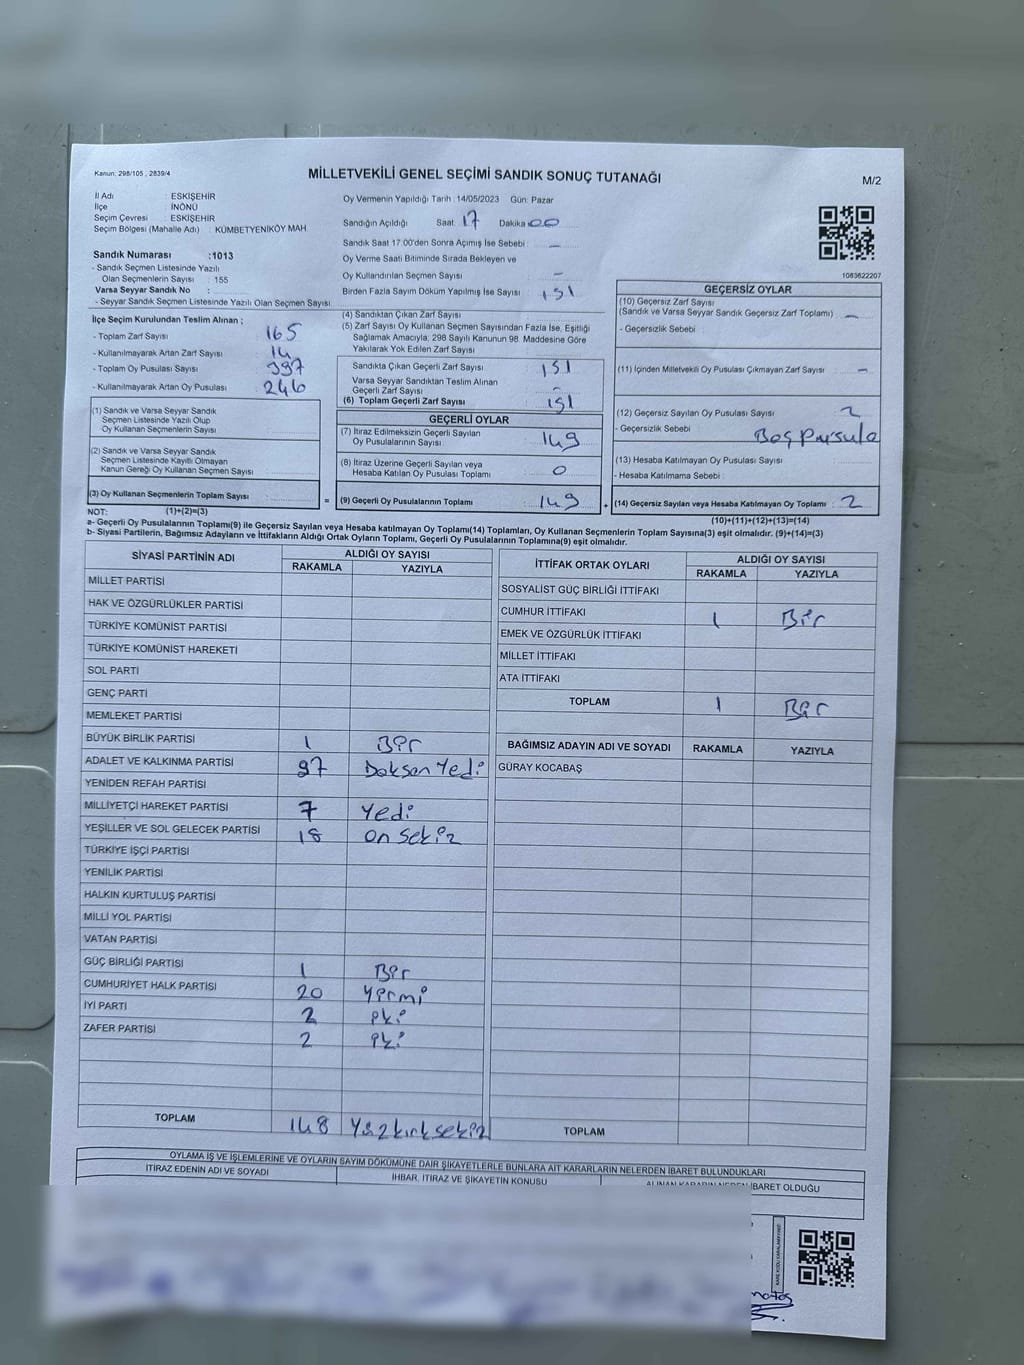 Kanun: 298/105 , 2839/4
MİLLETVEKİLİ GENEL SEÇİMİ SANDIK SONUÇ TUTANAĞI
M/2
İl Adı : ESKİŞEHİR
İlçe İNÖNÜ
Seçim Çevresi : ESKİŞEHİR
Seçim Bölgesi (Mahalle Adı) : KÜMBETYENİKÖY MAH.
Sandık Numarası :1013
- Sandık Seçmen Listesinde Yazılı
Olan Seçmenlerin Sayısı : 155
Varsa Seyyar Sandık No :
- Seyyar Sandık Seçmen Listesinde Yazılı Olan Seçmen Sayısı:
Oy Vermenin Yapıldığı Tarih :14/05/2023 Gün: Pazar
Sandığın Açıldığı Saat 17 Dakika 00
Sandık Saat 17:00'den Sonra Açımış İse Sebebi : -
Oy Verme Saati Bitiminde Sırada Bekleyen ve
Oy Kullandırılan Seçmen Sayısı : -
Birden Fazla Sayım Döküm Yapılmış İse Sayısı : 151
1083622207
İlçe Seçim Kurulundan Teslim Alınan ;
- Toplam Zarf Sayısı : 165
- Kullanılmayarak Artan Zarf Sayısı : 14
- Toplam Oy Pusulası Sayısı : 397
- Kullanılmayarak Artan Oy Pusulası : 246
(1) Sandık ve Varsa Seyyar Sandık
Seçmen Listesinde Yazılı Olup
Oy Kullanan Seçmenlerin Sayısı :
(2) Sandık ve Varsa Seyyar Sandık
Seçmen Listesinde Kayıtlı Olmayan
Kanun Gereği Oy Kullanan Seçmen Sayısı :
(3) Oy Kullanan Seçmenlerin Toplam Sayısı :
(4) Sandıktan Çıkan Zarf Sayısı
(5) Zarf Sayısı Oy Kullanan Seçmen Sayısından Fazla İse, Eşitliği
Sağlamak Amacıyla; 298 Sayılı Kanunun 98. Maddesine Göre
Yakılarak Yok Edilen Zarf Sayısı
Sandıkta Çıkan Geçerli Zarf Sayısı : 151
Varsa Seyyar Sandıktan Teslim Alınan
Geçerli Zarf Sayısı : -
(6) Toplam Geçerli Zarf Sayısı : 151
GEÇERLİ OYLAR
(7) İtiraz Edilmeksizin Geçerli Sayılan
Oy Pusulalarının Sayısı : 149
(8) İtiraz Üzerine Geçerli Sayılan veya
Hesaba Katılan Oy Pusulası Toplamı : 0
= (9) Geçerli Oy Pusulalarının Toplamı : 149 +
GEÇERSİZ OYLAR
(10) Geçersiz Zarf Sayısı
(Sandık ve Varsa Seyyar Sandık Geçersiz Zarf Toplamı) : -
- Geçersizlik Sebebi :
(11) İçinden Milletvekili Oy Pusulası Çıkmayan Zarf Sayısı : -
(12) Geçersiz Sayılan Oy Pusulası Sayısı : 2
- Geçersizlik Sebebi : Boş Pusula
(13) Hesaba Katılmayan Oy Pusulası Sayısı :
- Hesaba Katılmama Sebebi :
(14) Geçersiz Sayılan veya Hesaba Katılmayan Oy Toplamı : 2
NOT: (1)+(2)=(3)
(10)+(11)+(12)+(13)=(14)
a- Geçerli Oy Pusulalarının Toplamı(9) ile Geçersiz Sayılan veya Hesaba katılmayan Oy Toplamı(14) Toplamları, Oy Kullanan Seçmenlerin Toplam Sayısına(3) eşit olmalıdır. (9)+(14)=(3)
b- Siyasi Partilerin, Bağımsız Adayların ve İttifakların Aldığı Oyların Toplamı, Geçerli Oy Pusulalarının Toplamına(9) eşit olmalıdır.
SİYASİ PARTİNİN ADI ALDIĞI OY SAYISI
RAKAMLA YAZIYLA
MİLLET PARTİSİ
HAK VE ÖZGÜRLÜKLER PARTİSİ
TÜRKİYE KOMÜNİST PARTİSİ
TÜRKİYE KOMÜNİST HAREKETİ
SOL PARTİ
GENÇ PARTİ
MEMLEKET PARTİSİ
BÜYÜK BİRLİK PARTİSİ 1 Bir
ADALET VE KALKINMA PARTİSİ 97 Doksan Yedi
YENİDEN REFAH PARTİSİ
MİLLİYETÇİ HAREKET PARTİSİ 7 Yedi
YEŞİLLER VE SOL GELECEK PARTİSİ 18 on sekiz
TÜRKİYE İŞÇİ PARTİSİ
YENİLİK PARTİSİ
HALKIN KURTULUŞ PARTİSİ
MİLLİ YOL PARTİSİ
VATAN PARTİSİ
GÜÇ BİRLİĞİ PARTİSİ 1 Bir
CUMHURİYET HALK PARTİSİ 20 Yirmi
İYİ PARTİ 2 iki
ZAFER PARTİSİ 2 iki
TOPLAM 148 Yüzkırksekiz
İTTİFAK ORTAK OYLARI ALDIĞI OY SAYISI
RAKAMLA YAZIYLA
SOSYALİST GÜÇ BİRLİĞİ İTTİFAKI
CUMHUR İTTİFAKI 1 Bir
EMEK VE ÖZGÜRLÜK İTTİFAKI
MİLLET İTTİFAKI
ATA İTTİFAKI
TOPLAM 1 Bir
BAĞIMSIZ ADAYIN ADI VE SOYADI RAKAMLA YAZIYLA
GÜRAY KOCABAŞ
TOPLAM
OYLAMA İŞ VE İŞLEMLERİNE VE OYLARIN SAYIM DÖKÜMÜNE DAİR ŞİKAYETLERLE BUNLARA AİT KARARLARIN NELERDEN İBARET BULUNDUKLARI
İTİRAZ EDENİN ADI VE SOYADI İHBAR, İTİRAZ VE ŞİKAYETİN KONUSU ALINAN KARARIN NEDEN İBARET OLDUĞU